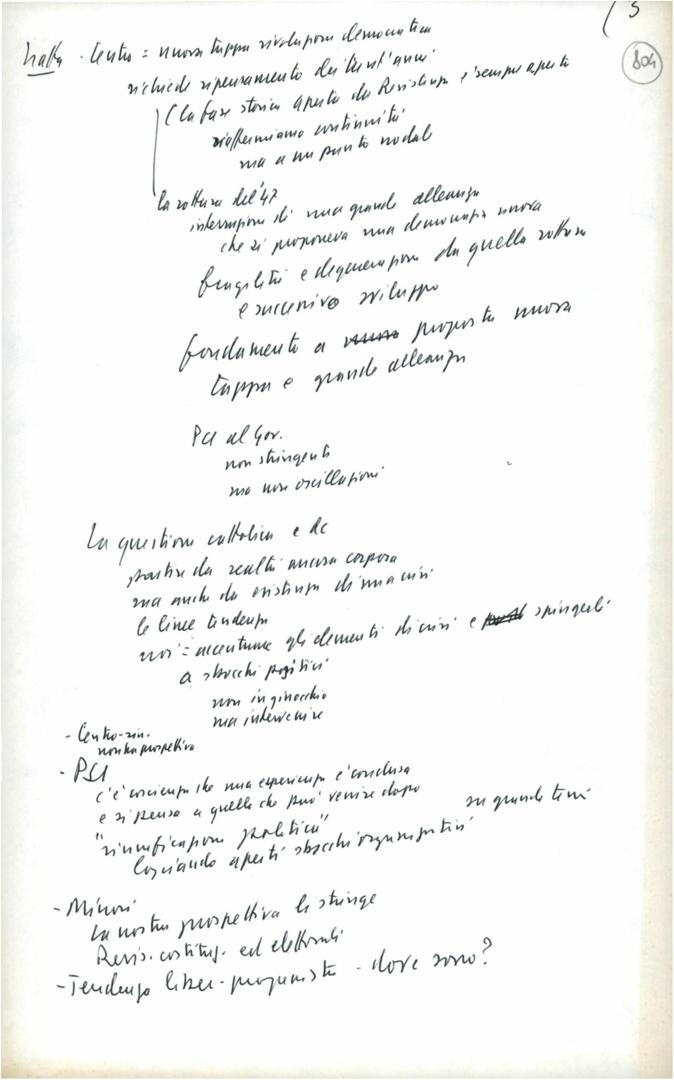 (5
804
Natta - Centro = nuova tappa rivoluzione democratica
richiede ripensamento dei trent'anni
(la fase storica aperta da Resistenza è sempre aperta
riaffermiamo continuità
ma a un punto nodale
la rottura del '47
interruzione di una grande alleanza
che si proponeva una democrazia nuova
fragilità e degenerazione da quella rottura
e successivo sviluppo
fondamento a proposta nuova
tappa e grande alleanza
PCI al Gov.
non stringenti
ma non oscillazioni
La questione cattolica e dc
partire da realtà ancora corposa
ma anche da esistenza di una crisi
le linee tendenza
noi = accentuare gli elementi di crisi e spingerli
a sbocchi positivi
non in ginocchio
ma intervenire
- Centro-sin.
non ha prospettiva
- PSI
c'è coscienza che una esperienza è conclusa
e si pensa a quello che può venire dopo
"riunificazione politica" su grandi temi
lasciando aperti sbocchi organizzativi
- Minori
La nostra prospettiva li stringe
Revis. costituz. ed elettorali
- Tendenza liber-progressista - dove sono?